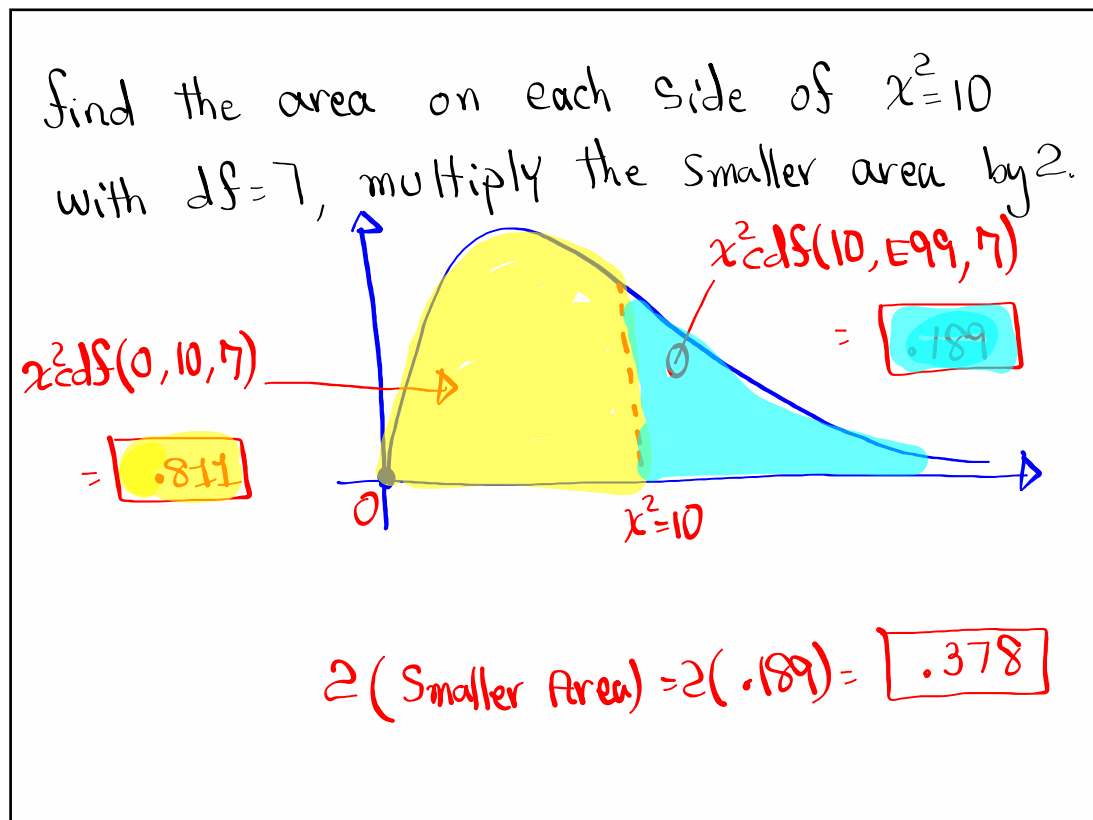 find the area on each side of x²=10
with df=7, multiply the smaller area by 2.
x²cdf(10,E99,7)
= .189
x²cdf(0,10,7)
= .811
0
x²=10
2(Smaller Area)=2(.189)= .378